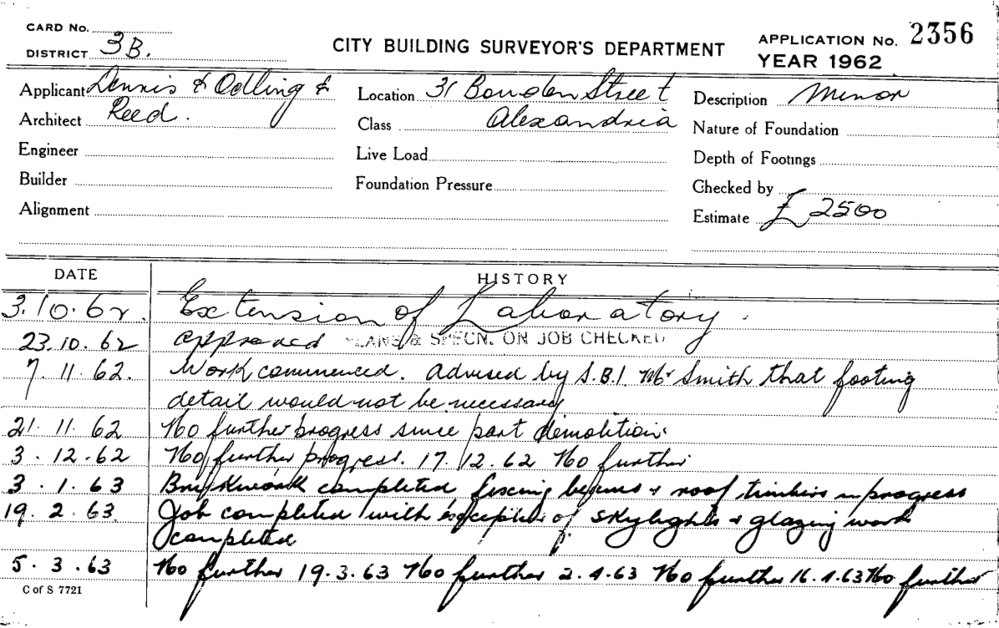 CARD No.
DISTRICT 3B.
CITY BUILDING SURVEYOR'S DEPARTMENT
APPLICATION No. 2356
YEAR 1962
Applicant Dennis & Odling &
Architect Reed.
Engineer
Builder
Alignment
Location 31 Bowden Street
Class Alexandria
Live Load
Foundation Pressure
Description Minor
Nature of Foundation
Depth of Footings
Checked by
Estimate £2500
DATE HISTORY
3.10.62. Extension of Laboratory.
23.10.62 approved PLANS & SPECN. ON JOB CHECKED
7.11.62. Work commenced. advised by S.B.I Mr Smith that footing
detail would not be necessary
21.11.62 No further progress since part demolition.
3.12.62 No further progress. 17.12.62 No further
3.1.63 Brickwork completed fixing beams & roof timbers in progress
19.2.63. Job completed with exception of skylights & glazing work
completed
5.3.63 No further 19.3.63 No further 2.4.63 No further 16.4.63 No further
C of S 7721